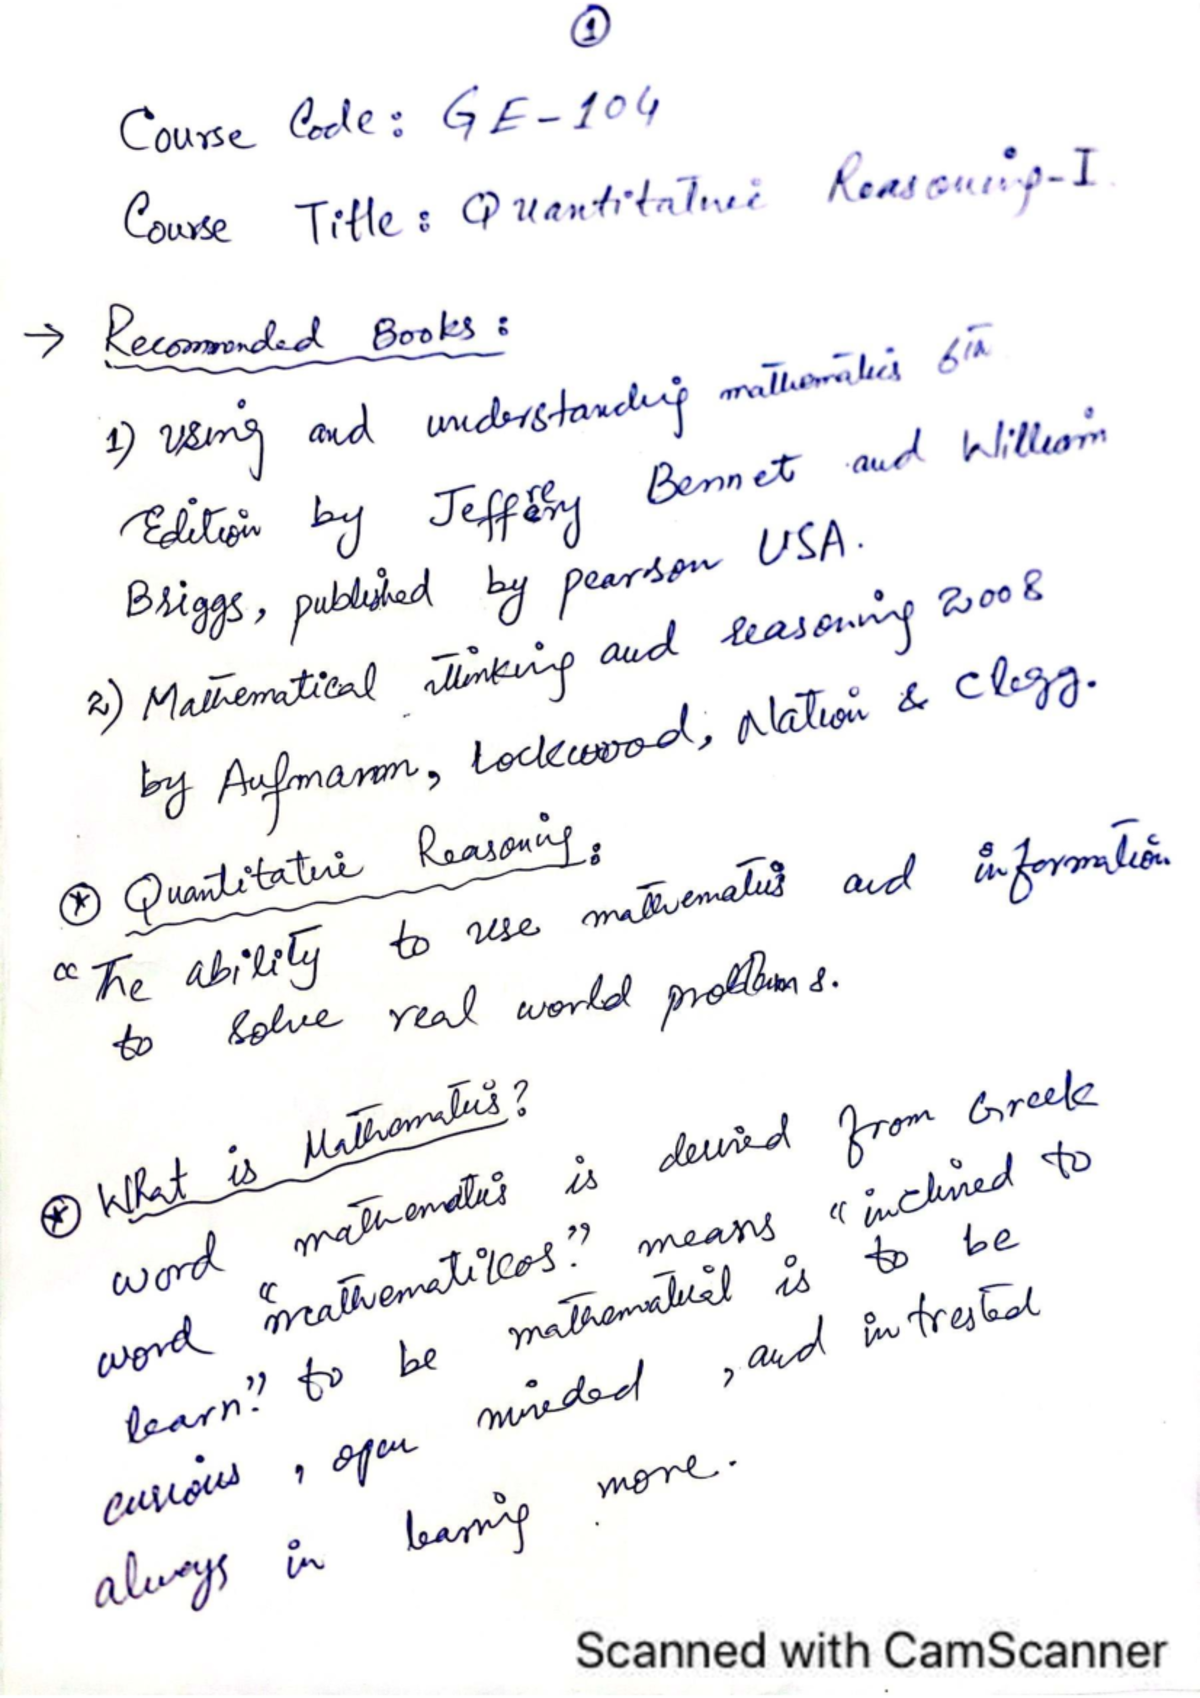 1
Course Code: GE-104
Course Title: Quantitative Reasoning-I
→ Recommended Books:
1) Using and understanding mathematics 6th
Edition by Jeffrey Bennet and William
Briggs, published by pearson USA.
2) Mathematical thinking and reasoning 2008
by Aufmann, Lockwood, Nation & Clegg.
* Quantitative Reasoning:
"The ability to use mathematics and information
to solve real world problems.
* What is Mathematics?
word mathematics is derived from Greek
word "mathematikos" means "inclined to
learn" to be mathematical is to be
curious, open minded, and intrested
always in learning more.
Scanned with CamScanner